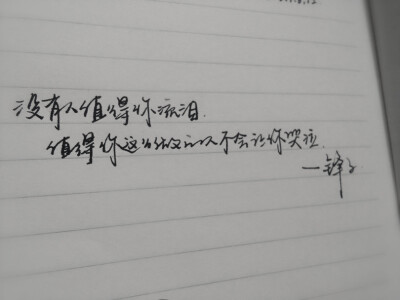 没有人值得你流泪.
值得你这么做的人不会让你哭泣.